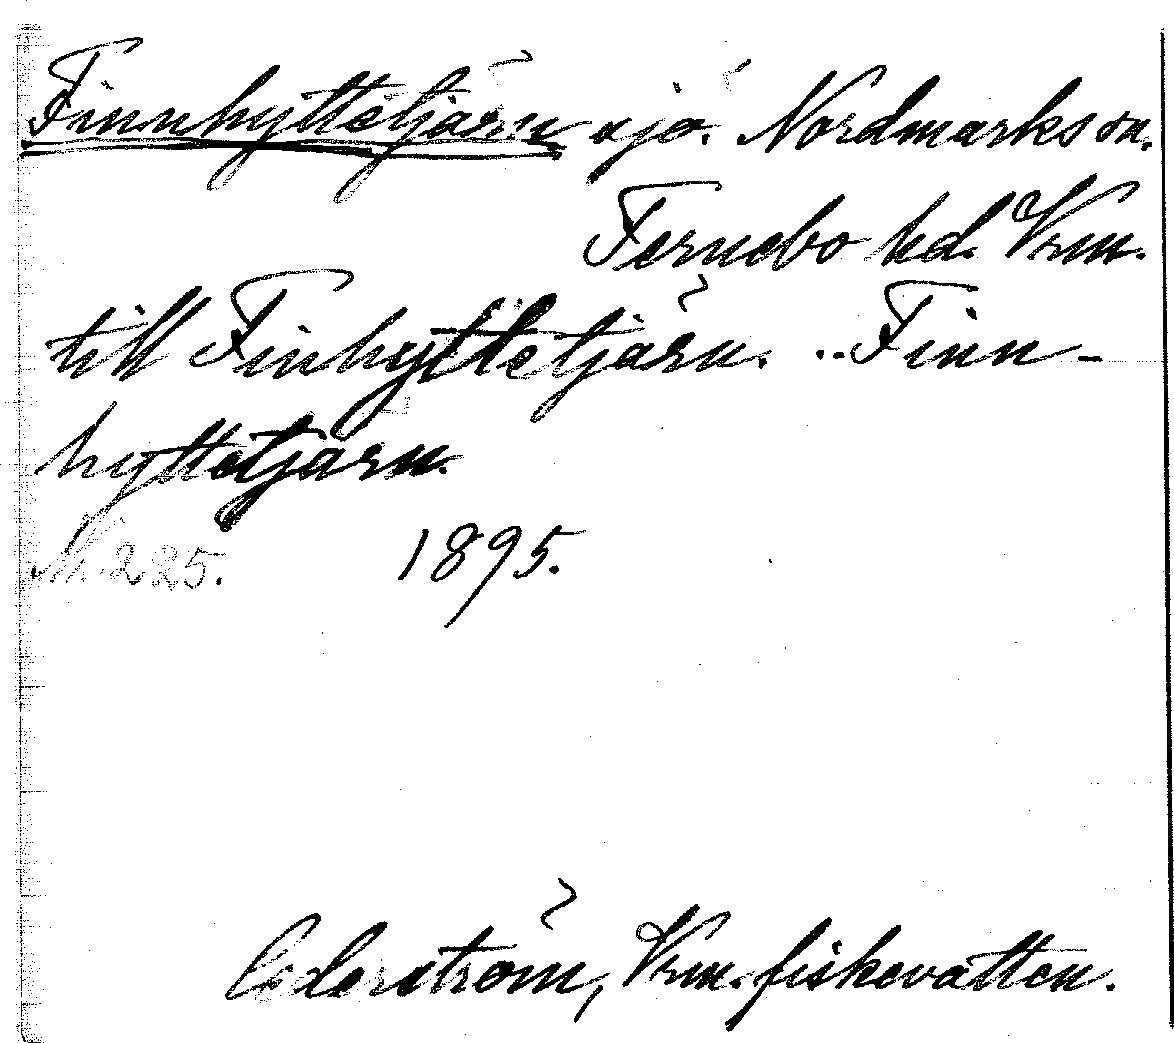 Finnhyttetjärn sjö. Nordmarks sn.
Fernebo hd. Vrm.
till Finhyttetjärn. .. Finn-
hyttetjärn.
N. 225. 1895.
Cederström, Vrm. fiskevatten.